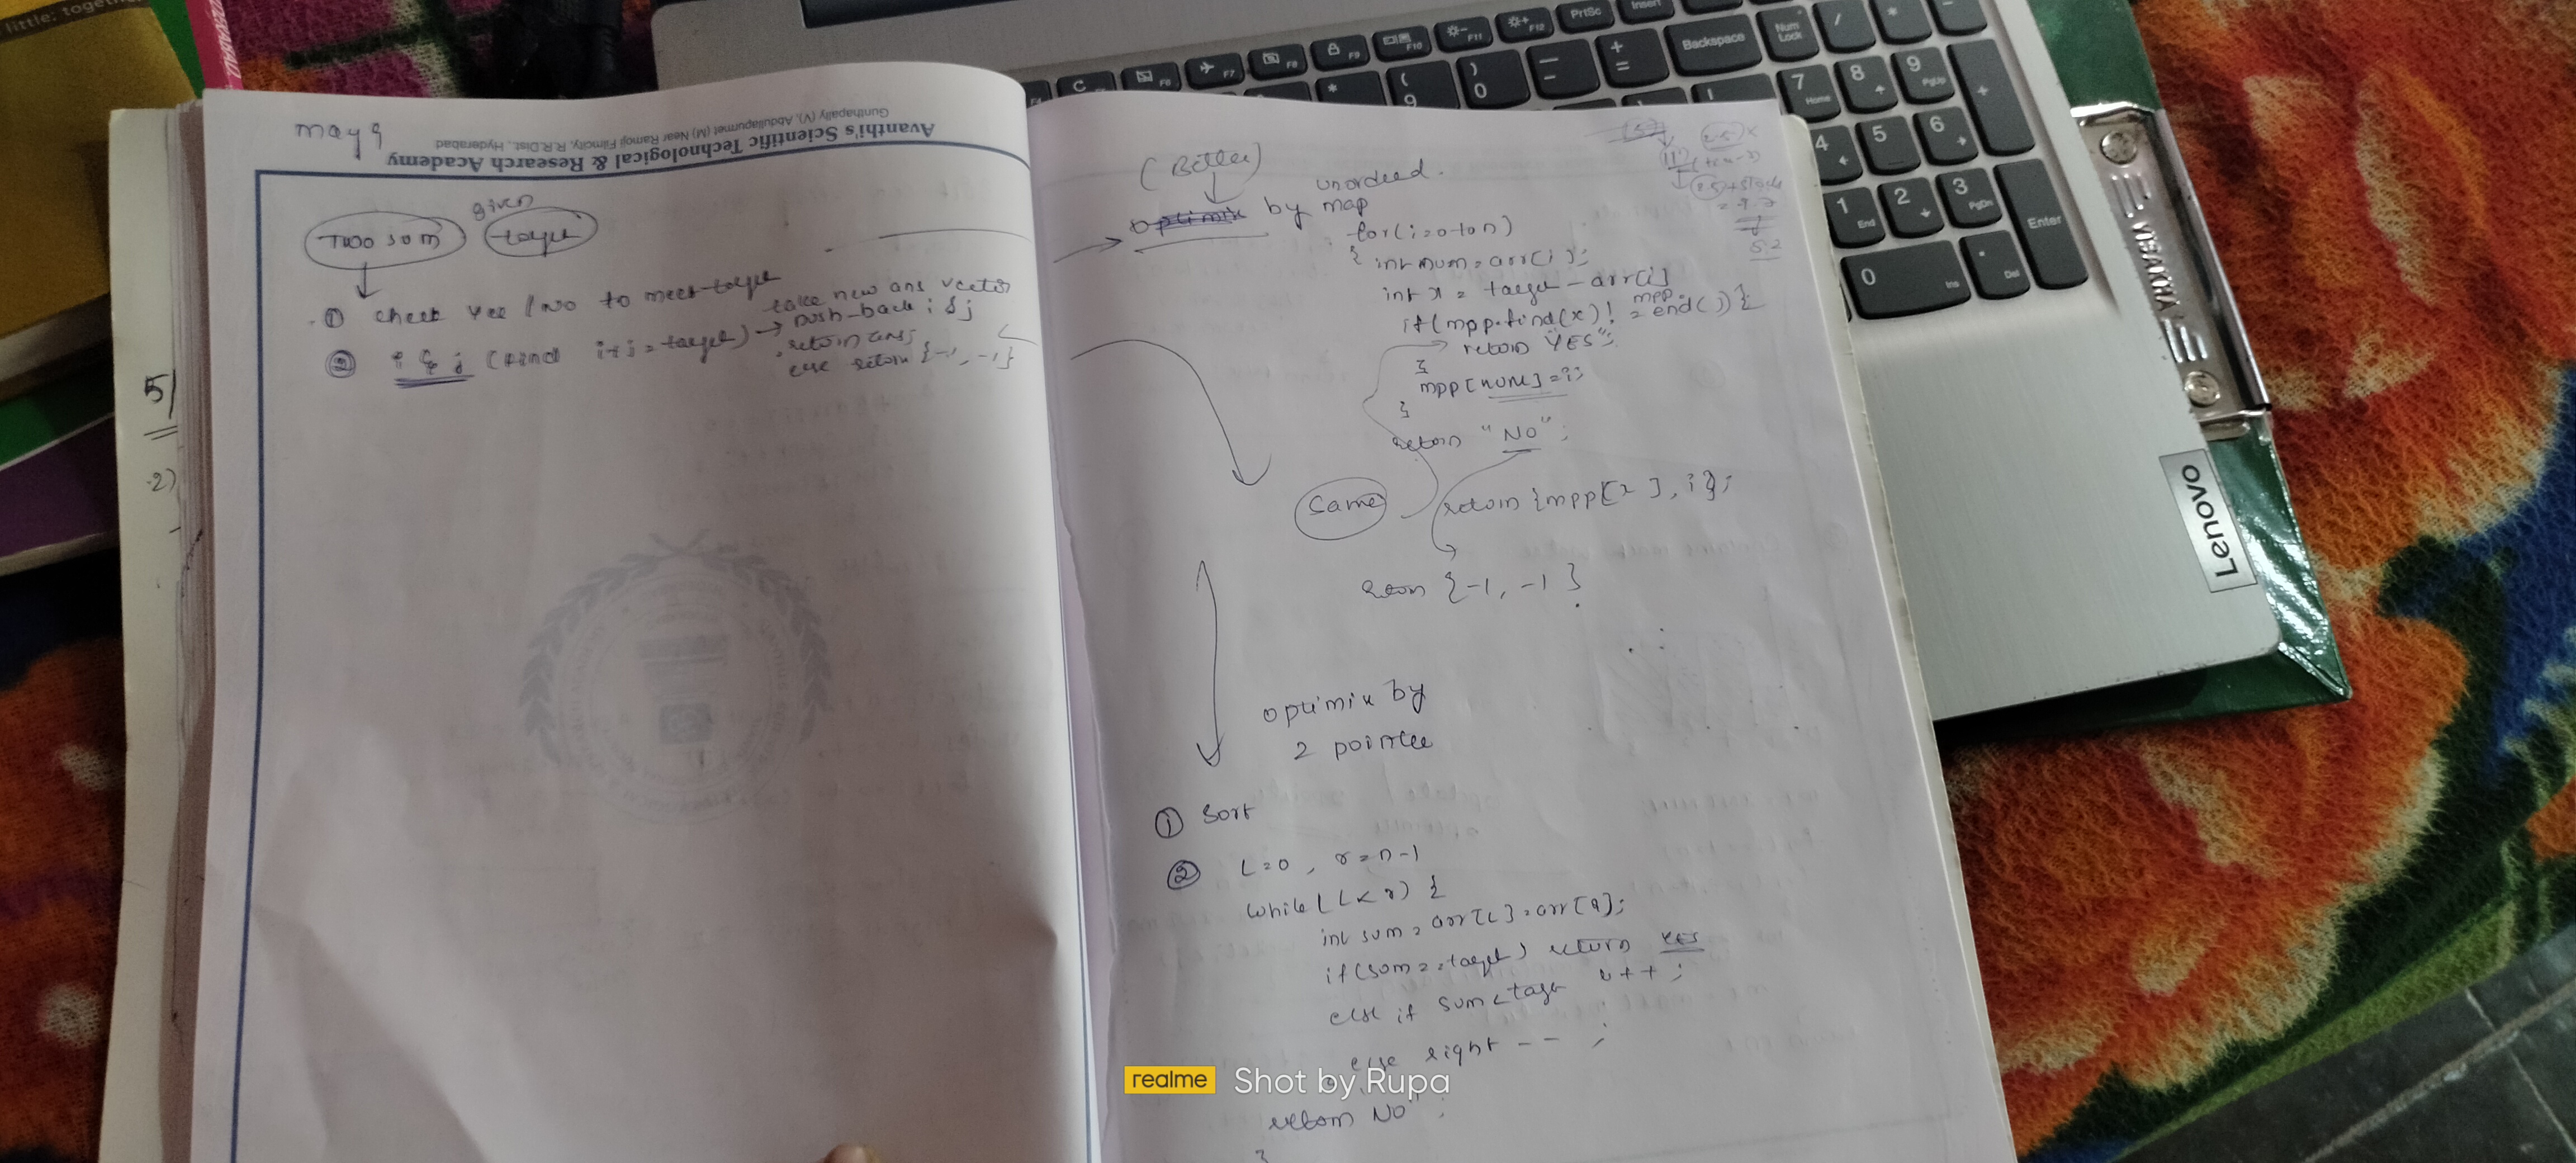 little: together
may 9
Avanthi's Scientific Technological & Research Academy
Gunthapally (V), Abdullapurmet (M) Near Ramoji Filmcity, R.R.Dist., Hyderabad
Two sum
given
target
① check Yes / No to meet target
② i & j (find i+j = target) →
take new ans vector
push-back i & j
return ans;
else return {-1, -1}
5
2)
(Better)
optimix by unordeed.
map
for(i=0 to n)
{ int num = arr[i];
int x = target - arr[i]
if(mpp.find(x) != mpp.end()) {
return "YES";
}
mpp[num] = i;
}
return "NO";
Same
return {mpp[x], i};
return {-1, -1}
optimix by
2 pointer
① Sort
② L=0, r=n-1
while(L<r) {
int sum = arr[L]+arr[r];
if(sum==target) return YES
else if sum<target L++;
else right--;
return NO";
}
PrtSc
Insert
Backspace
Num Lock
/
*
-
F6
F7
F8
F9
F10
F11
F12
(
9
)
0
+
=
7
Home
8
9
PgUp
+
4
5
6
1
End
2
3
PgDn
Enter
0
Ins
.
Del
VISAKHA
Lenovo
realme Shot by Rupa